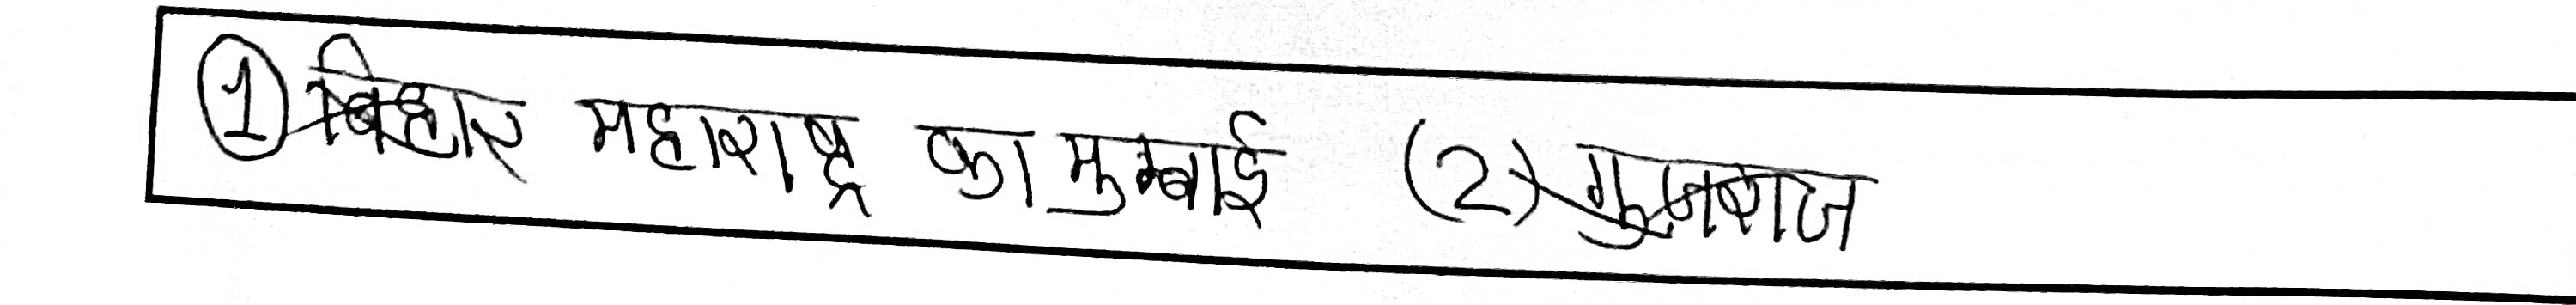 ① बिहार महाराष्ट्र का मुम्बाई (2) गुजराज